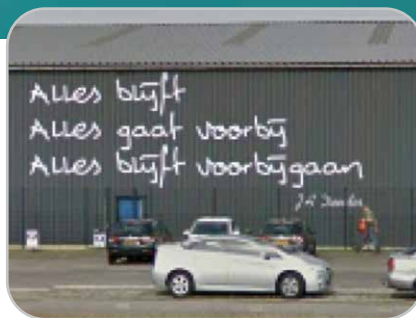 Alles blijft
Alles gaat voorbij
Alles blijft voorbijgaan